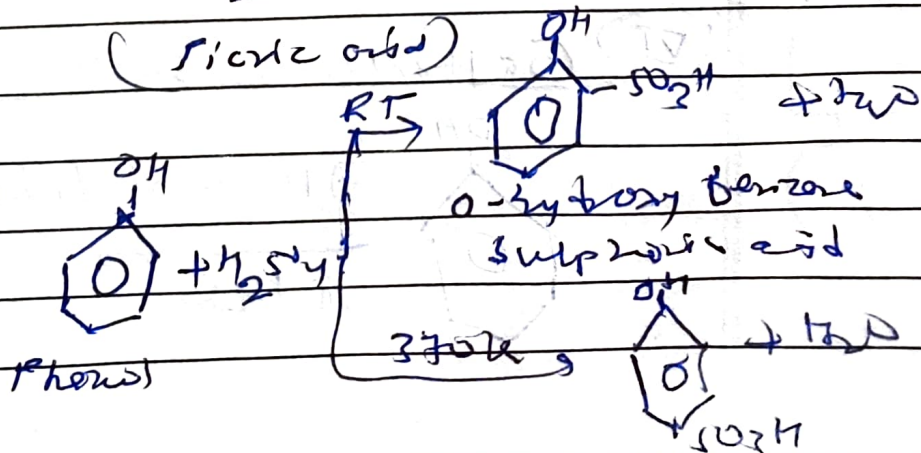 (Picric acid)
OH
SO3H + H2O
RT
OH
+ H2SO4
o-hydroxy benzene
sulphonic acid
OH
370K + H2O
Phenol
SO3H